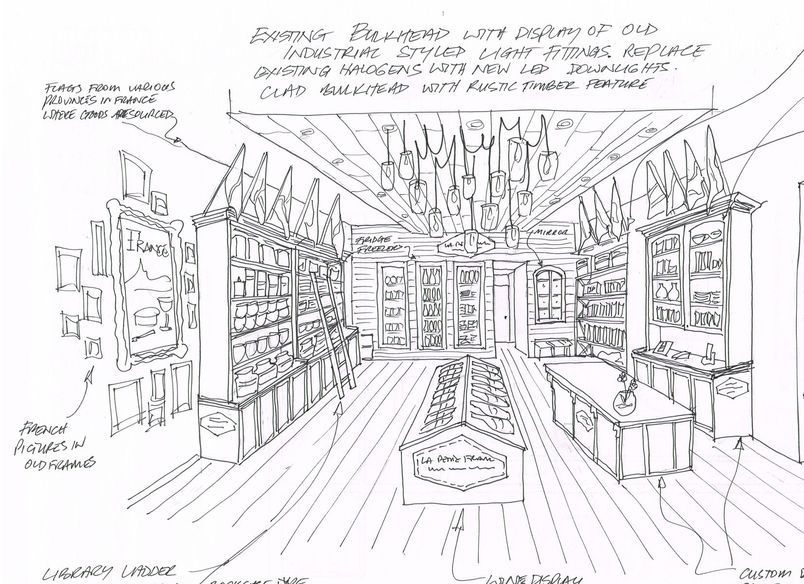 EXISTING BULKHEAD WITH DISPLAY OF OLD
INDUSTRIAL STYLED LIGHT FITTINGS. REPLACE
EXISTING HALOGENS WITH NEW LED DOWNLIGHTS.
CLAD BULKHEAD WITH RUSTIC TIMBER FEATURE
FLAGS FROM VARIOUS
PROVINCES IN FRANCE
WHERE GOODS ARE SOURCED
FRIDGE
FREEZERS
LA PETITE
MIRROR
FRANCE
LA PETITE FRANC
FRENCH
PICTURES IN
OLD FRAMES
LIBRARY LADDER
WINE DISPLAY
CUSTOM